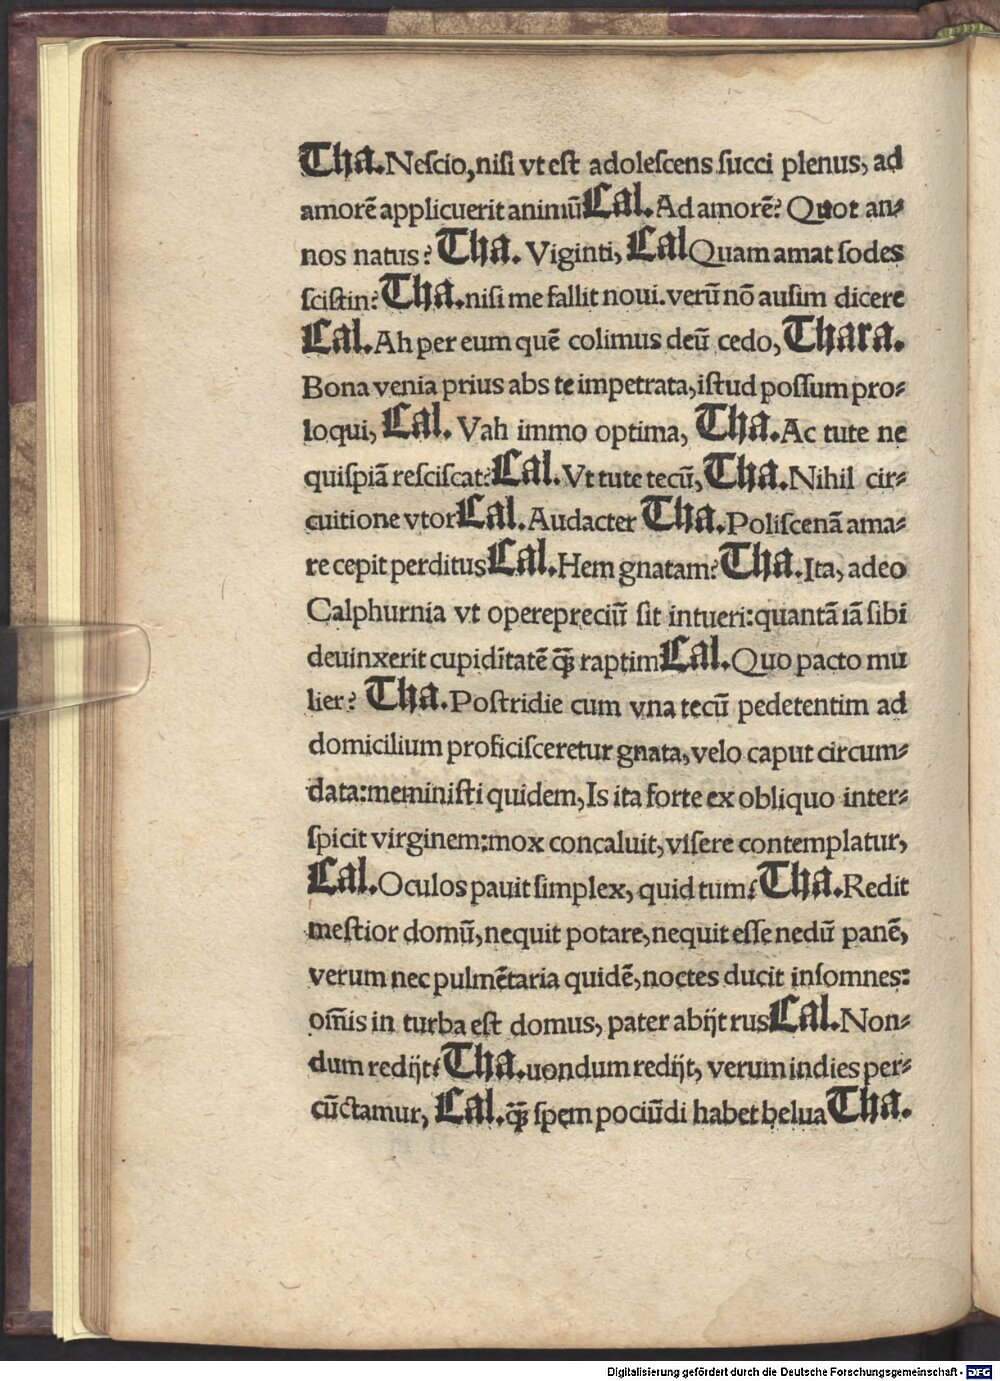 Tha.Neſcio,niſi vt eſt adoleſcens ſucci plenus, ad
amorē applicuerit animū Cal. Ad amorē? Quot an⸗
nos natus? Tha. Viginti, Cal Quam amat ſodes
ſciſtin? Tha.niſi me fallit noui.verū nō auſim dicere
Cal. Ah per eum quē colimus deū cedo, Thara.
Bona venia prius abs te impetrata,iſtud poſſum pro⸗
loqui, Cal. Vah immo optima, Tha. Ac tute ne
quiſpiā reſciſcat? Cal. Vt tute tecū, Tha. Nihil cir⸗
cuitione vtor Cal. Audacter Tha. Poliſcenā ama⸗
re cepit perditus Cal. Hem gnatam? Tha. Ita, adeo
Calphurnia vt operepreciū ſit intueri:quantā iā ſibi
deuinxerit cupiditatē q̄ꝫ raptim Cal. Quo pacto mu
lier? Tha. Poſtridie cum vna tecū pedetentim ad
domicilium proficiſceretur gnata, velo caput circum⸗
data:meminiſti quidem, Is ita forte ex obliquo inter⸗
ſpicit virginem:mox concaluit, viſere contemplatur,
Cal. Oculos pauit ſimplex, quid tum? Tha. Redit
meſtior domū,nequit potare,nequit eſſe nedū panē,
verum nec pulmētaria quidē,noctes ducit inſomnes:
om̄is in turba eſt domus, pater abijt rus Cal. Non⸗
dum redijt? Tha.uondum redijt, verum indies per⸗
cūctamur, Cal. q̄ꝫ ſpem pociūdi habet belua Tha.
Digitalisierung gefördert durch die Deutsche Forschungsgemeinschaft - DFG